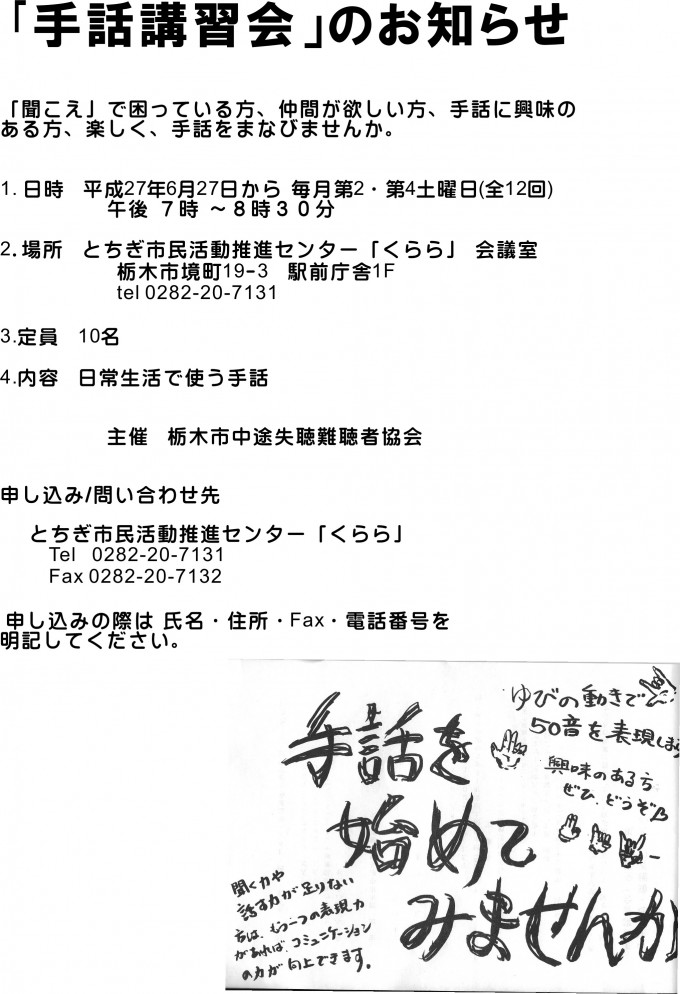 「手話講習会」のお知らせ
「聞こえ」で困っている方、仲間が欲しい方、手話に興味の
ある方、楽しく、手話をまなびませんか。
1. 日時　平成27年6月27日から 毎月第2・第4土曜日(全12回)
午後 7時 ～8時30分
2. 場所　とちぎ市民活動推進センター「くらら」 会議室
栃木市境町19-3　駅前庁舎1F
tel 0282-20-7131
3.定員　10名
4.内容　日常生活で使う手話
主催　栃木市中途失聴難聴者協会
申し込み/問い合わせ先
とちぎ市民活動推進センター「くらら」
Tel 0282-20-7131
Fax 0282-20-7132
申し込みの際は 氏名・住所・Fax・電話番号を
明記してください。
手話を
始めて
みませんか
ゆびの動きで
50音を表現しよう
興味のある方
ぜひ、どうぞ
聞く力や
話す力が足りない
方は、もう一つの表現力
があれば、コミュニケーション
の力が向上できます。